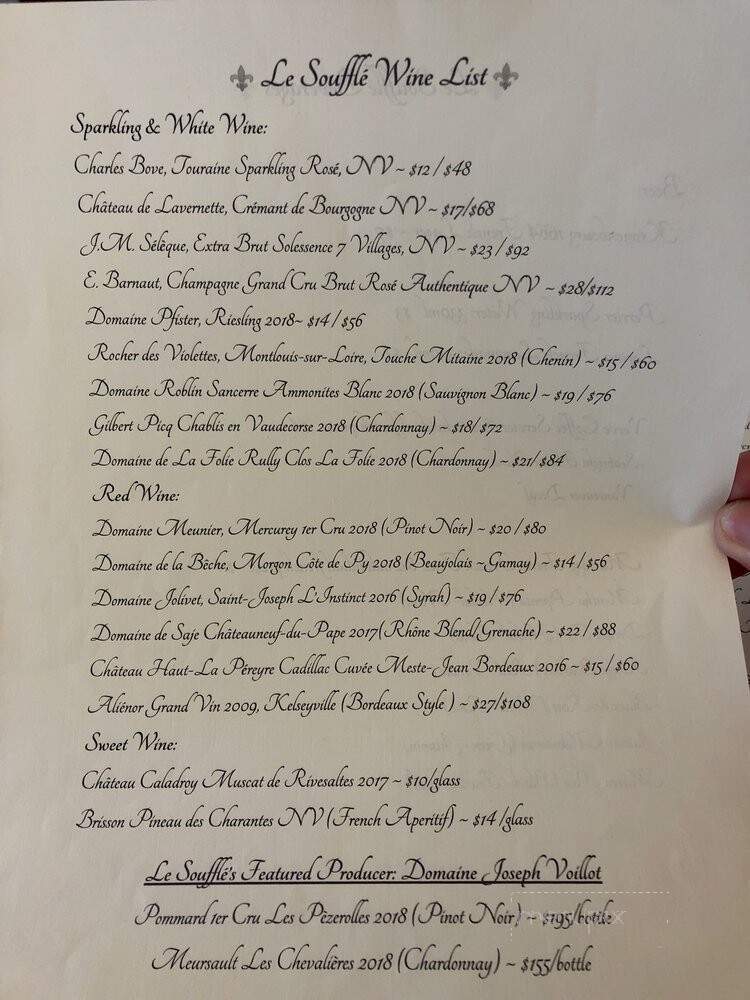 Le Soufflé Wine List
Sparkling & White Wine:
Charles Bove, Touraine Sparkling Rosé, NV ~ $12 / $48
Château de Lavernette, Crémant de Bourgogne NV ~ $17/$68
J.M. Sélèque, Extra Brut Solessence 7 Villages, NV ~ $23 / $92
E. Barnaut, Champagne Grand Cru Brut Rosé Authentique NV ~ $28/$112
Domaine Pfister, Riesling 2018~ $14 / $56
Rocher des Violettes, Montlouis-sur-Loire, Touche Mitaine 2018 (Chenin) ~ $15 / $60
Domaine Roblin Sancerre Ammonites Blanc 2018 (Sauvignon Blanc) ~ $19 / $76
Gilbert Picq Chablis en Vaudecorse 2018 (Chardonnay) ~ $18/ $72
Domaine de La Folie Rully Clos La Folie 2018 (Chardonnay) ~ $21/ $84
Red Wine:
Domaine Meunier, Mercurey 1er Cru 2018 (Pinot Noir) ~ $20 / $80
Domaine de la Bêche, Morgon Côte de Py 2018 (Beaujolais ~Gamay) ~ $14 / $56
Domaine Jolivet, Saint-Joseph L'Instinct 2016 (Syrah) ~ $19 / $76
Domaine de Saje Châteauneuf-du-Pape 2017(Rhône Blend/Grenache) ~ $22 / $88
Château Haut-La Péreyre Cadillac Cuvée Meste-Jean Bordeaux 2016 ~ $15 / $60
Aliénor Grand Vin 2009, Kelseyville (Bordeaux Style ) ~ $27/$108
Sweet Wine:
Château Caladroy Muscat de Rivesaltes 2017 ~ $10/glass
Brisson Pineau des Charantes NV (French Aperitif) ~ $14 /glass
Le Soufflé's Featured Producer: Domaine Joseph Voillot
Pommard 1er Cru Les Pèzerolles 2018 (Pinot Noir) ~ $195/bottle
Meursault Les Chevalières 2018 (Chardonnay) ~ $155/bottle